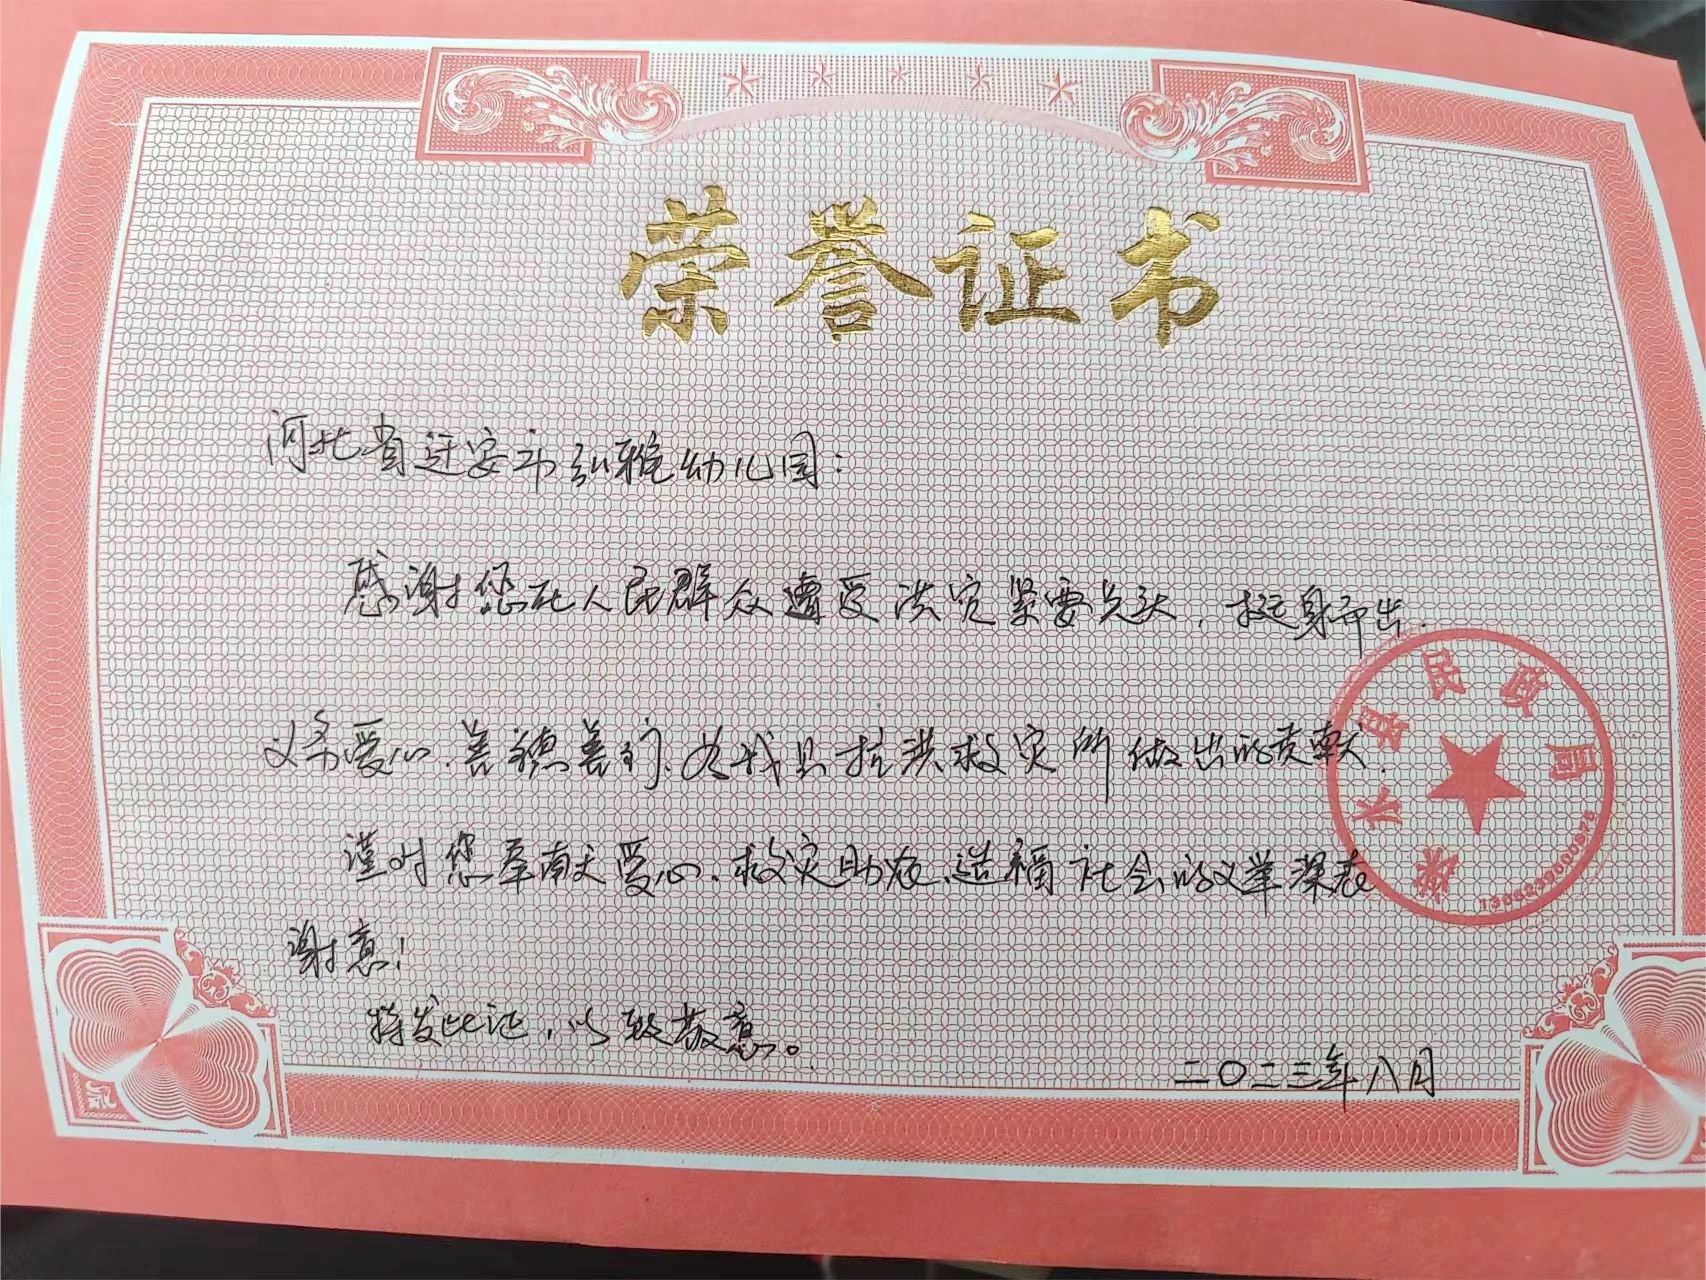 荣誉证书
河北省迁安市弘雅幼儿园：
感谢您在人民群众遭受洪灾紧要关头，挺身而出．
义务爱心．善德善行、为我县抗洪救灾所做出的贡献．
谨对您奉献爱心．救灾助农．造福社会的义举深表
谢意！
特发此证，以致敬意。
二〇二三年八月
涞水县民政局